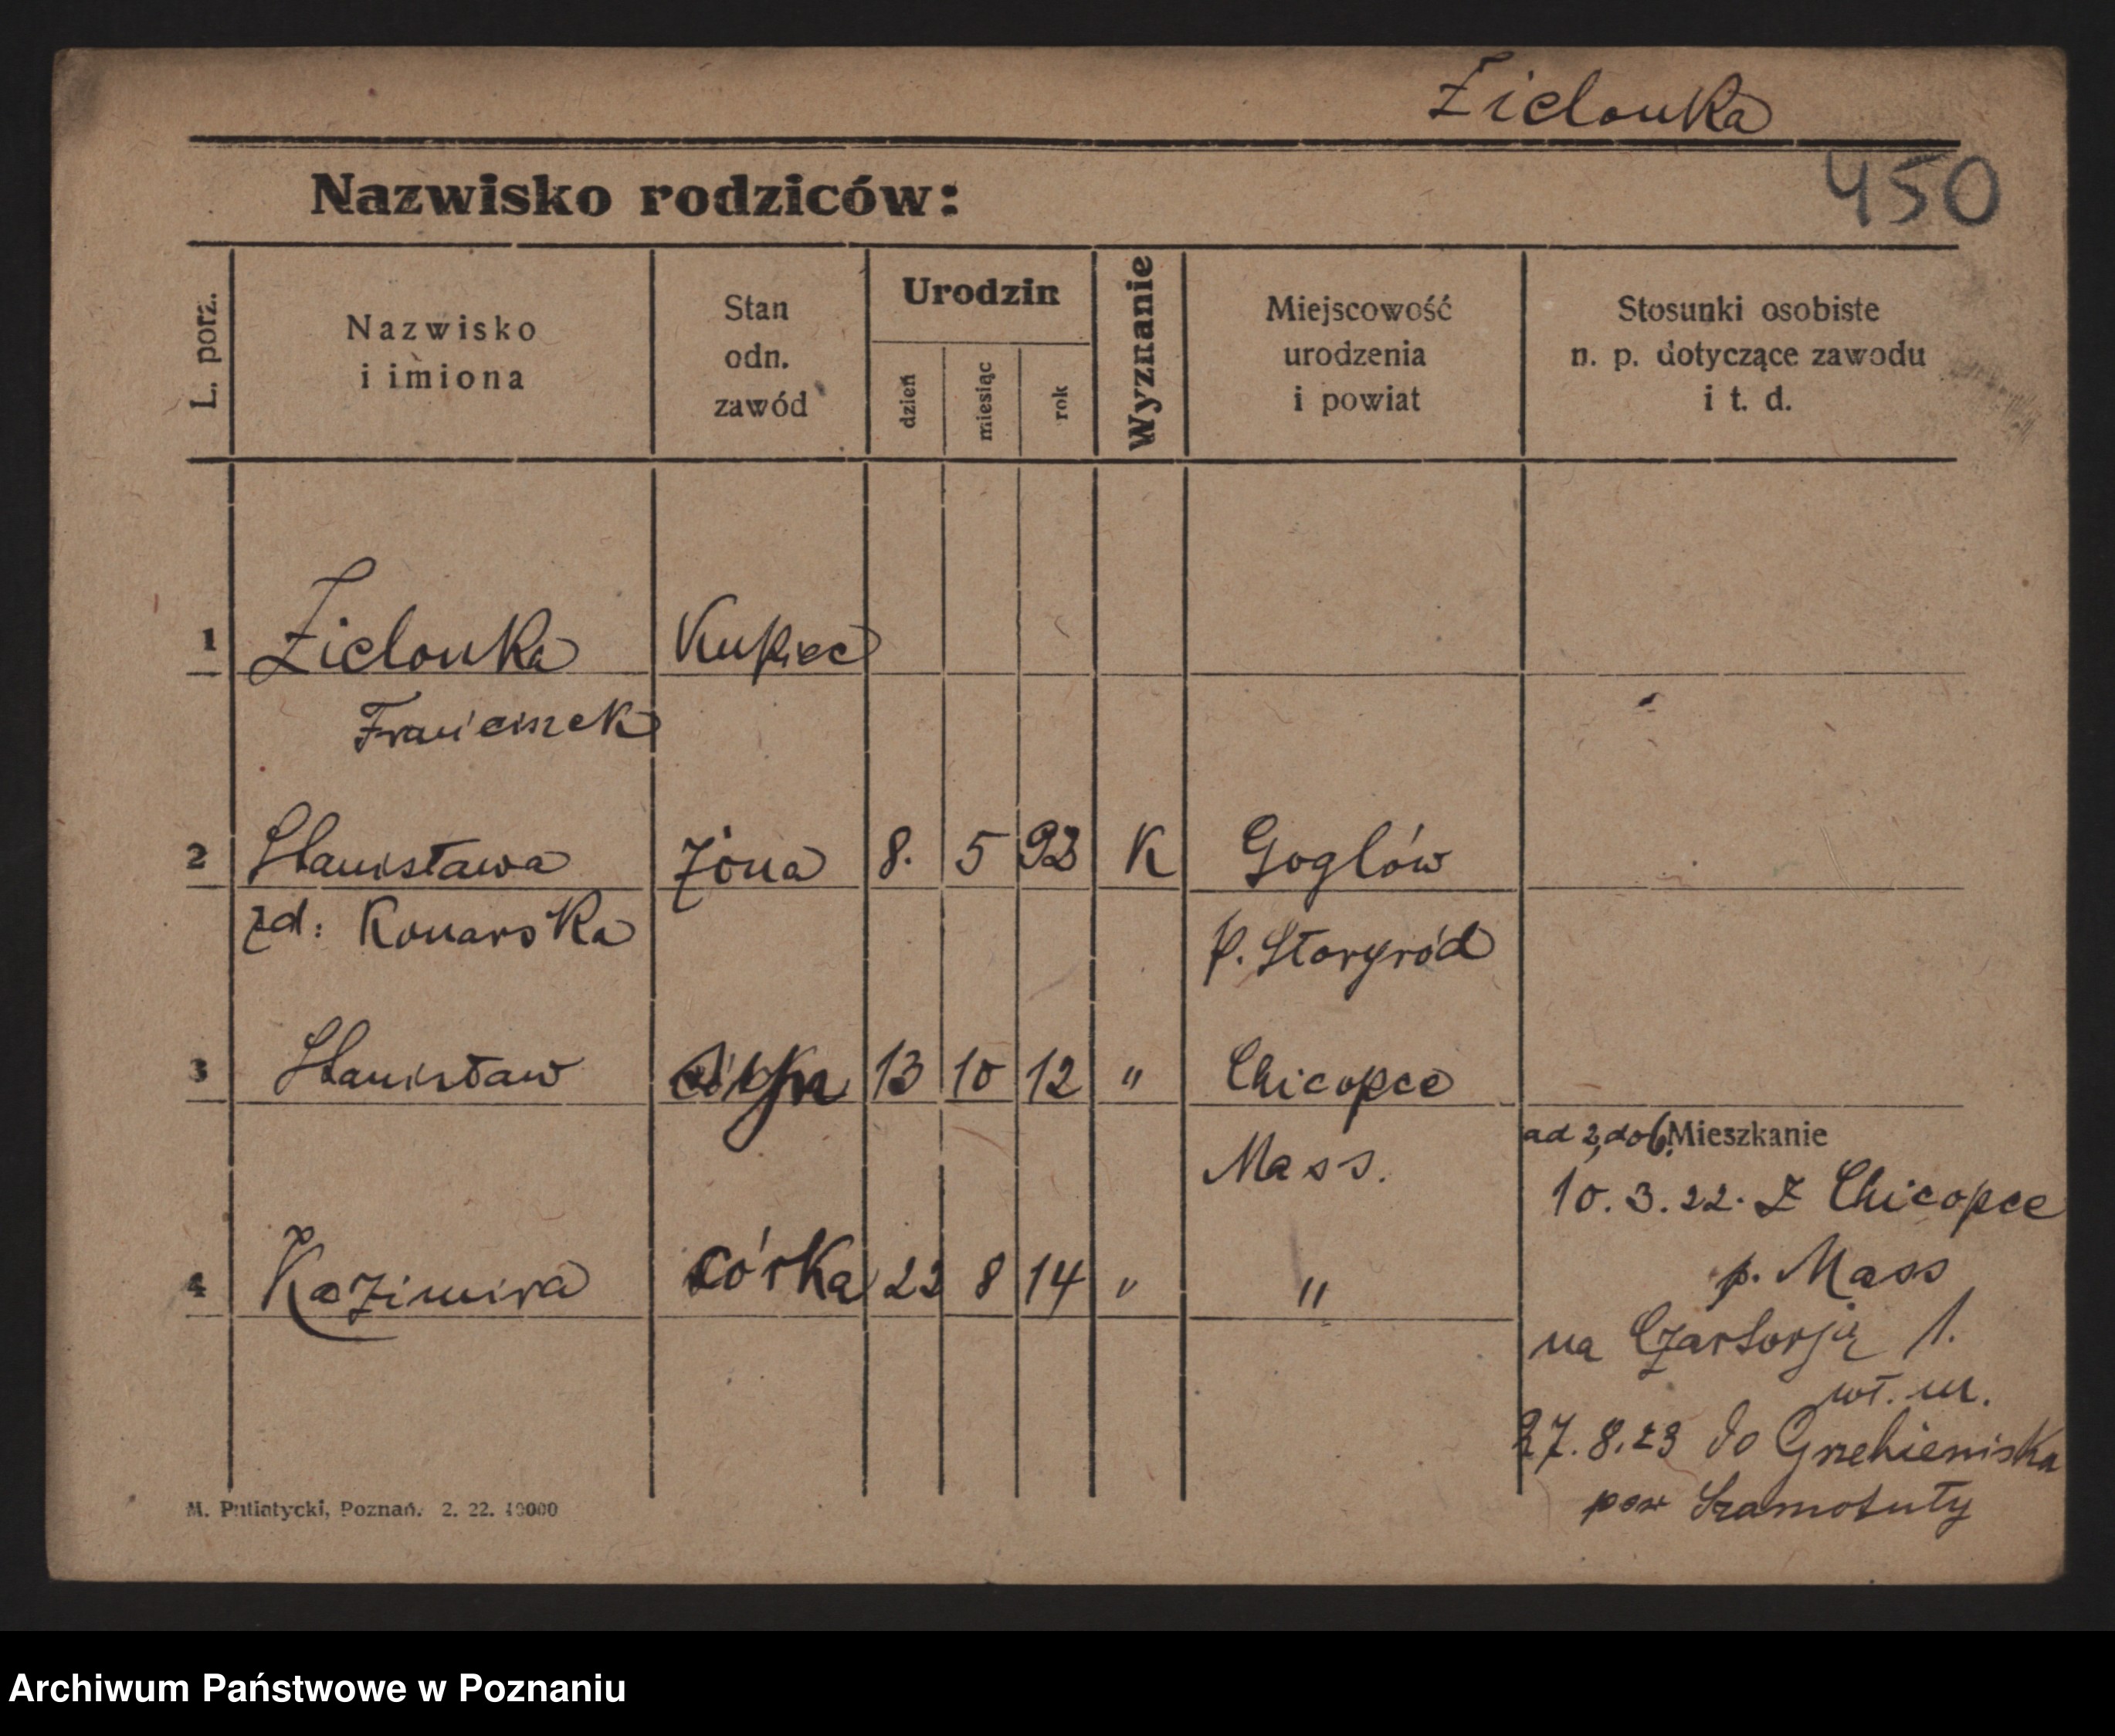 Zielonka
450
Nazwisko rodziców:
L. porz.
Nazwisko
i imiona
Stan
odn.
zawód
Urodzin
dzień
miesiąc
rok
Wyznanie
Miejscowość
urodzenia
i powiat
Stosunki osobiste
n. p. dotyczące zawodu
i t. d.
1 Zielonka Kupiec
Franciszek
2 Stanisława żona 8. 5 92 K Goglów
zd: Konarska p. Starygród
3 Stanisław syn 13 10 12 " Chicopee
Mass.
4 Kazimira córka 22 8 14 " "
ad 2, do 6. Mieszkanie
10. 3. 22. Z Chicopee
p. Mass
na Czartorją 1.
wł. m.
27. 8. 23 do Grzebieniska
pow Szamotuły
M. Putiatycki, Poznań. 2. 22. 10000
Archiwum Państwowe w Poznaniu